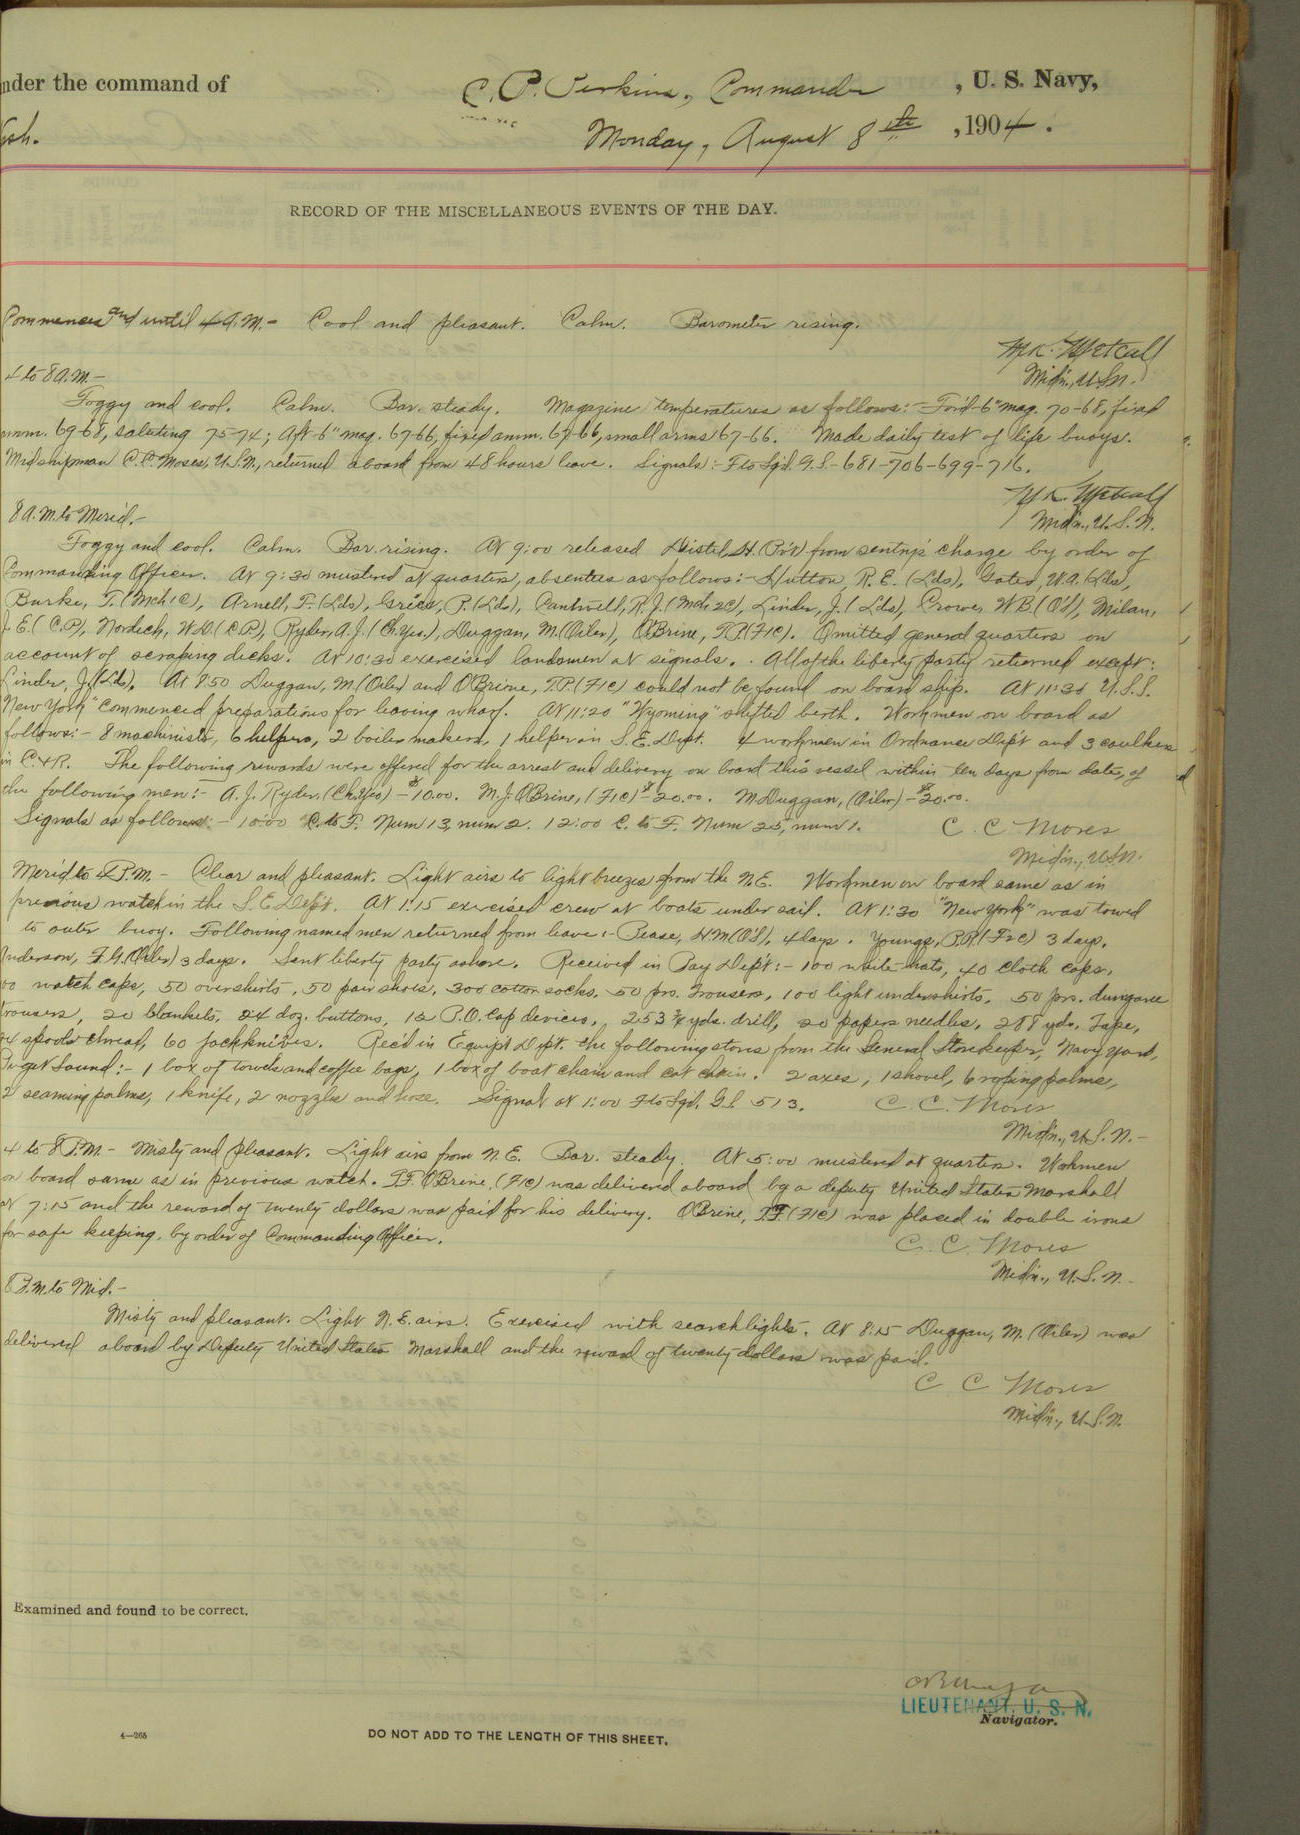 nder the command of C. P. Perkins, Commander, U. S. Navy,
sh. Monday, August 8th, 1904.
RECORD OF THE MISCELLANEOUS EVENTS OF THE DAY.
Commences and until 4 A.M.- Cool and pleasant. Calm. Barometer rising.
M.K. Metcalf
Mid'n., U.S.N.
4 to 8 A.M.-
Foggy and cool. Calm. Bar. steady. Magazine temperatures as follows:- For'd-6" mag. 70-68, fixed
amm. 69-68, saluting 75-74; Aft-6" mag. 67-66, fixed amm. 67-66, small arms 67-66. Made daily test of life buoys.
Midshipman C.C. Moses, U.S.N., returned aboard from 48 hours leave. Signals:- F to Sqd. G.S.-681-706-699-716.
M.K. Metcalf
Mid'n., U.S.N.
8 A.M. to Merid.-
Foggy and cool. Calm. Bar. rising. At 9:00 released Distel, H. (Pvt) from sentry's charge by order of
Commanding Officer. At 9:30 mustered at quarters, absentees as follows:- Hutton, R.E. (Lds), Gates, W.A. (Lds),
Burke, T. (Mch 1C), Arnell, F. (Lds), Grice, P. (Lds), Cantwell, R.J. (Mch 2C), Linder, J. (Lds), Crowe, W.B. (OS), Milan,
J.E. (C.P), Nordich, W.D. (C.P), Ryder, A.J. (Ch. Yeo.), Duggan, M. (Oiler), O'Brine, T.P. (F1C). Omitted general quarters on
account of scraping decks. At 10:30 exercised landsmen at signals. All of the liberty party returned except:
Linder, J. (Lds). At 8.50 Duggan, M. (Oiler) and O'Brine, T.P. (F1C) could not be found on board ship. At 11:30 U.S.S.
New York" commenced preparations for leaving wharf. At 11:20 "Wyoming" shifted berth. Workmen on board as
follows:- 8 machinists, 6 helpers, 2 boiler makers, 1 helper in S.E. Dept. 4 workmen in Ordnance Dep't and 3 caulkers
in C.&R. The following rewards were offered for the arrest and delivery on board this vessel within ten days from date, of
the following men:- A.J. Ryder, (Ch. Yeo)-$10.00. M.J. O'Brine, (F1C)-$20.00. M. Duggan, (Oiler)-$20.00.
Signals as follows:- 10:00 C. to F. Num 13, num 2. 12:00 C. to F. Num 25, num 1. C. C. Moses
Mid'n., U.S.N.
Merid to 4 P.M.- Clear and pleasant. Light airs to light breezes from the N.E. Workmen on board same as in
previous watch in the S.E. Dep't. At 1:15 exercised crew at boats under sail. At 1:30 "New York" was towed
to outer buoy. Following named men returned from leave:- Pease, H.M. (OS), 4 days. Youngs, P.R. (F2C) 3 days.
Anderson, F.G. (Oiler) 3 days. Sent liberty party ashore. Received in Pay Dep't:- 100 white hats, 40 cloth caps,
00 watch caps, 50 overshirts, 50 pair shoes, 300 cotton socks, 50 prs. trousers, 100 light undershirts, 50 prs. dungaree
trousers, 20 blankets, 24 doz. buttons, 12 P.O. Cap devices, 253 3/4 yds. drill, 20 papers needles, 288 yds. Tape,
spools thread, 60 jackknives. Rec'd in Equip't Dept. the following stores from the General Storekeeper, Navy Yard,
Puget Sound:- 1 box of towels and coffee bags, 1 box of boat chain and cat chain. 2 axes, 1 shovel, 6 roping palms,
2 seaming palms, 1 knife, 2 nozzles and hose. Signal at 1:00 F to Sqd. G.S. 513. C. C. Moses
Mid'n., U.S.N.-
4 to 8 P.M.- Misty and pleasant. Light airs from N.E. Bar. steady. At 5:00 mustered at quarters. Workmen
on board same as in previous watch. T.F. O'Brine, (F1C) was delivered aboard by a deputy United States Marshall
at 7:15 and the reward of twenty dollars was paid for his delivery. O'Brine, T.F. (F1C) was placed in double irons
for safe keeping, by order of Commanding Officer.
C. C. Moses
Mid'n., U.S.N.-
8 P.M. to Mid.-
Misty and pleasant. Light N.E. airs. Exercised with searchlights. At 8:15 Duggan, M. (Oiler) was
delivered aboard by Deputy United States Marshall and the reward of twenty dollars was paid.
C C Moses
Mid'n., U.S.N.
Examined and found to be correct.
LIEUTENANT, U. S. N.
Navigator.
4—265 DO NOT ADD TO THE LENGTH OF THIS SHEET.